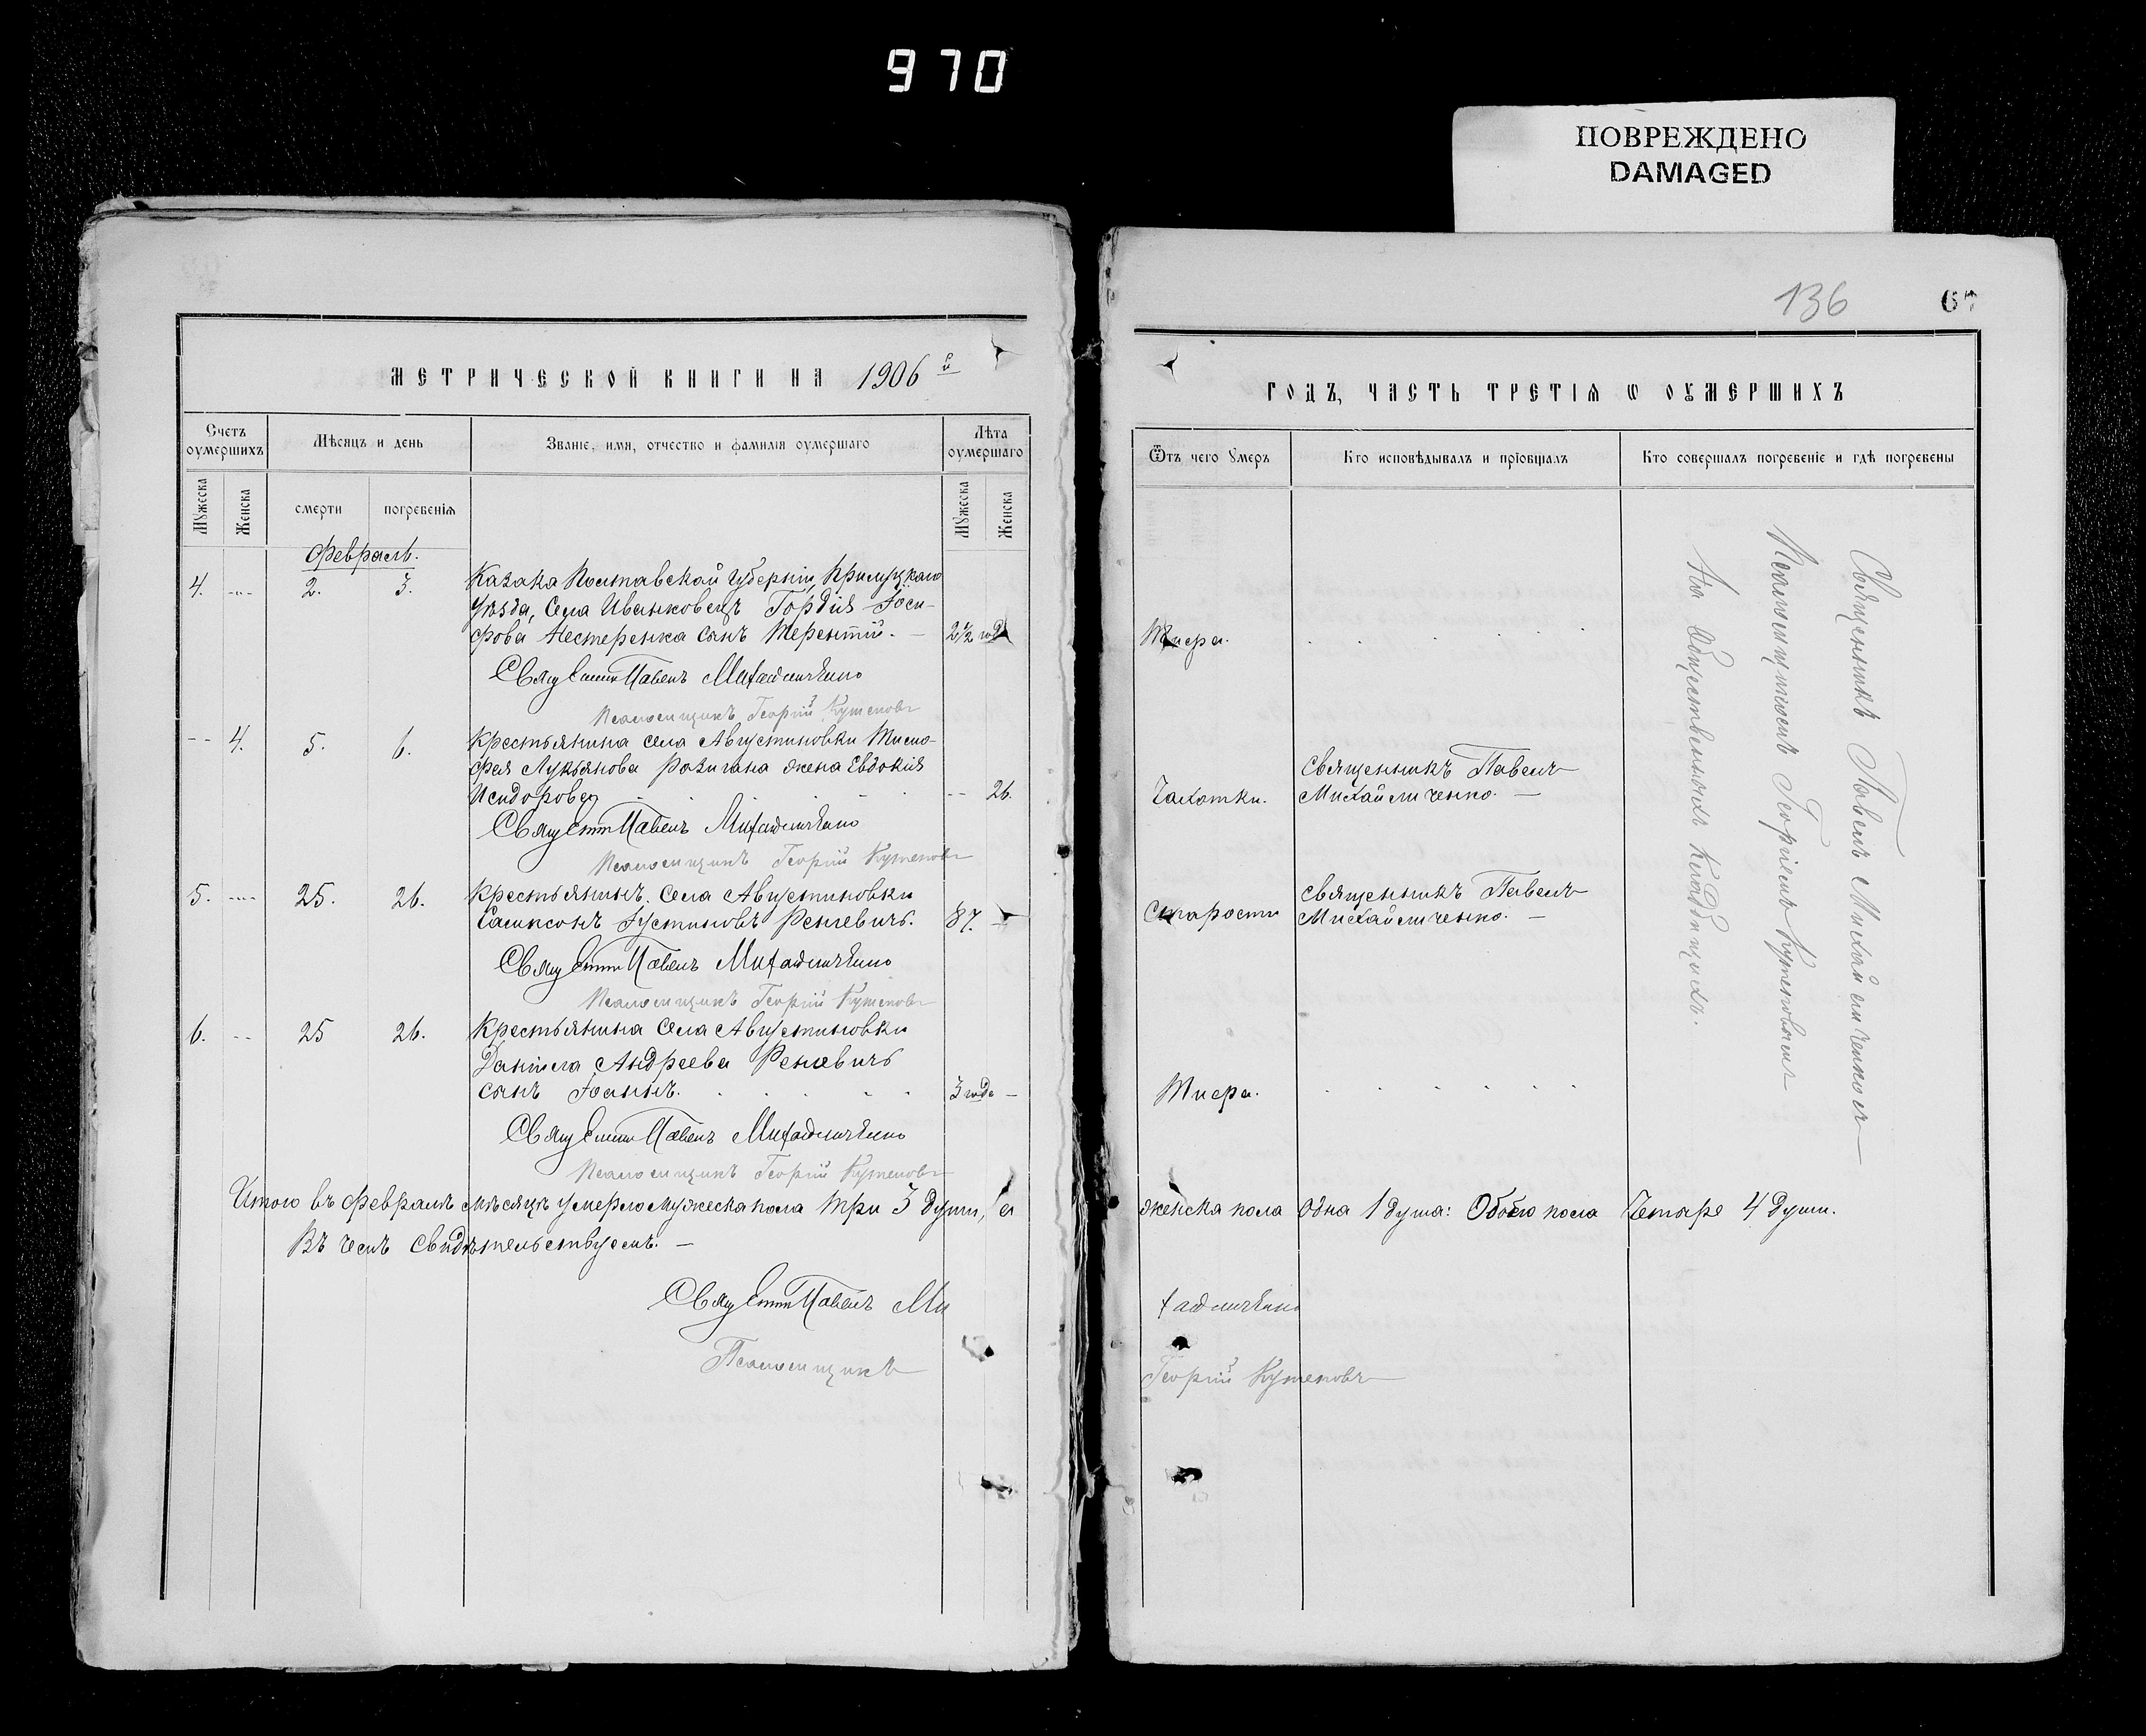 970
ПОВРЕЖДЕНО
DAMAGED
136
67
МЕТРИЧЕСКОЙ КНИГИ НА 1906 й
Счетъ оумершихъ
Мѣсяцъ и день
Званіе, имя, отчество и фамилія оумершаго
Лѣта оумершаго
Мужеска
Женска
смерти
погребенія
Мужеска
Женска
Февраль.
4. -"- 2. 3. Казака Полтавской губерніи, Прилуцкаго
уѣзда, Села Иванковецъ Гордія Іоси-
фова Нестеренка сынъ Терентій. — 2½ год
Священникъ Павелъ Михайличенко
Псаломщикъ Георгій Кутеповъ
-- 4. 5. 6. Крестьянина села Августиновки Тимо-
фея Лукьянова Розигана жена Евдокія
Исидорова -- 26.
Священникъ Павелъ Михайличенко
Псаломщикъ Георгій Кутеповъ
5. -"- 25. 26. Крестьянинъ села Августиновки
Самсонъ Іустиновъ Реневичъ. 87. —
Священникъ Павелъ Михайличенко
Псаломщикъ Георгій Кутеповъ
6. -- 25 26. Крестьянина села Августиновки
Даніила Андреева Реневичъ
сынъ Іоаннъ. 3 года —
Священникъ Павелъ Михайличенко
Псаломщикъ Георгій Кутеповъ
Итого въ Февралѣ мѣсяцѣ умерло мужеска пола три 3 души, а
Въ чемъ свидѣтельствуемъ. —
Священникъ Павелъ Ми
Псаломщикъ
ГОДЪ, ЧАСТЬ ТРЕТІЯ Ѡ ОУМЕРШИХЪ
Ѿтъ чего Умеръ
Кто исповѣдывалъ и пріобщалъ
Кто совершалъ погребеніе и гдѣ погребены
Тифа.
Священникъ Павелъ
Чахотки. Михайличенко. —
Священникъ Павелъ
Старости Михайличенко. —
Тифа.
Священникъ Павелъ Михайличенкомъ
Псаломщикомъ Георгіемъ Кутеповымъ
На Общественномъ Кладбищѣ.
женска пола одна 1 душа: Обоего пола Четыре 4 души.
хайличенко
Георгій Кутеповъ